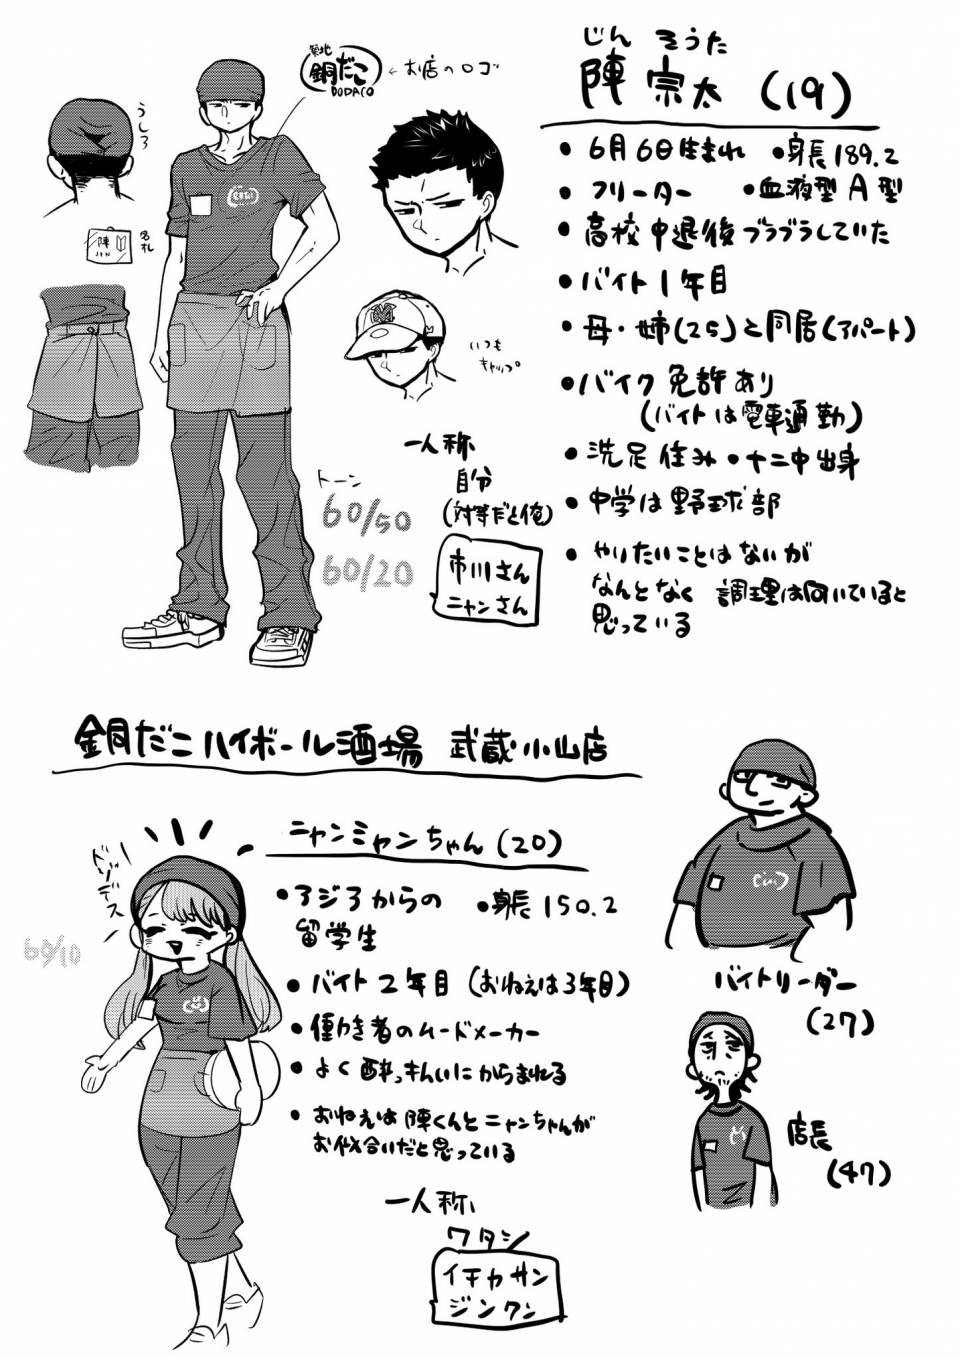 じん そうた
陣 宗太 (19)
築北
銅だこ
DODACO
←お店のロゴ
うしろ
陣
名札
いつも
キャップ。
・6月6日生まれ ・身長189.2
・フリーター ・血液型 A型
・高校中退後ブラブラしていた
・バイト1年目
・母・姉(25)と同居(アパート)
・バイク免許あり
(バイトは電車通勤)
・洗足住み・十二中出身
・中学は野球部
・やりたいことはないが
なんとなく 調理は向いていると
思っている
一人称
自分
(対等だと俺)
市川さん
ニャンさん
トーン
60/50
60/20
銅だこハイボール酒場 武蔵小山店
ニャンミャンちゃん(20)
・アジアからの
留学生
・身長150.2
・バイト2年目(おねえは3年目)
・働き者のムードメーカー
・よく酔っぱらいにからまれる
・おねえは陣くんとニャンちゃんが
お似合いだと思っている
一人称、
ワタシ
イチカサン
ジンクン
60/10
バイトリーダー
(27)
店長
(47)